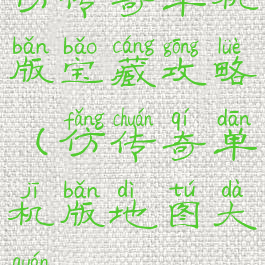 传奇单机
bǎn bǎo cáng gōng lüè
版宝藏攻略
fǎng chuán qí dān
（仿传奇单
jī bǎn dì tú dà
机版地图大
quán